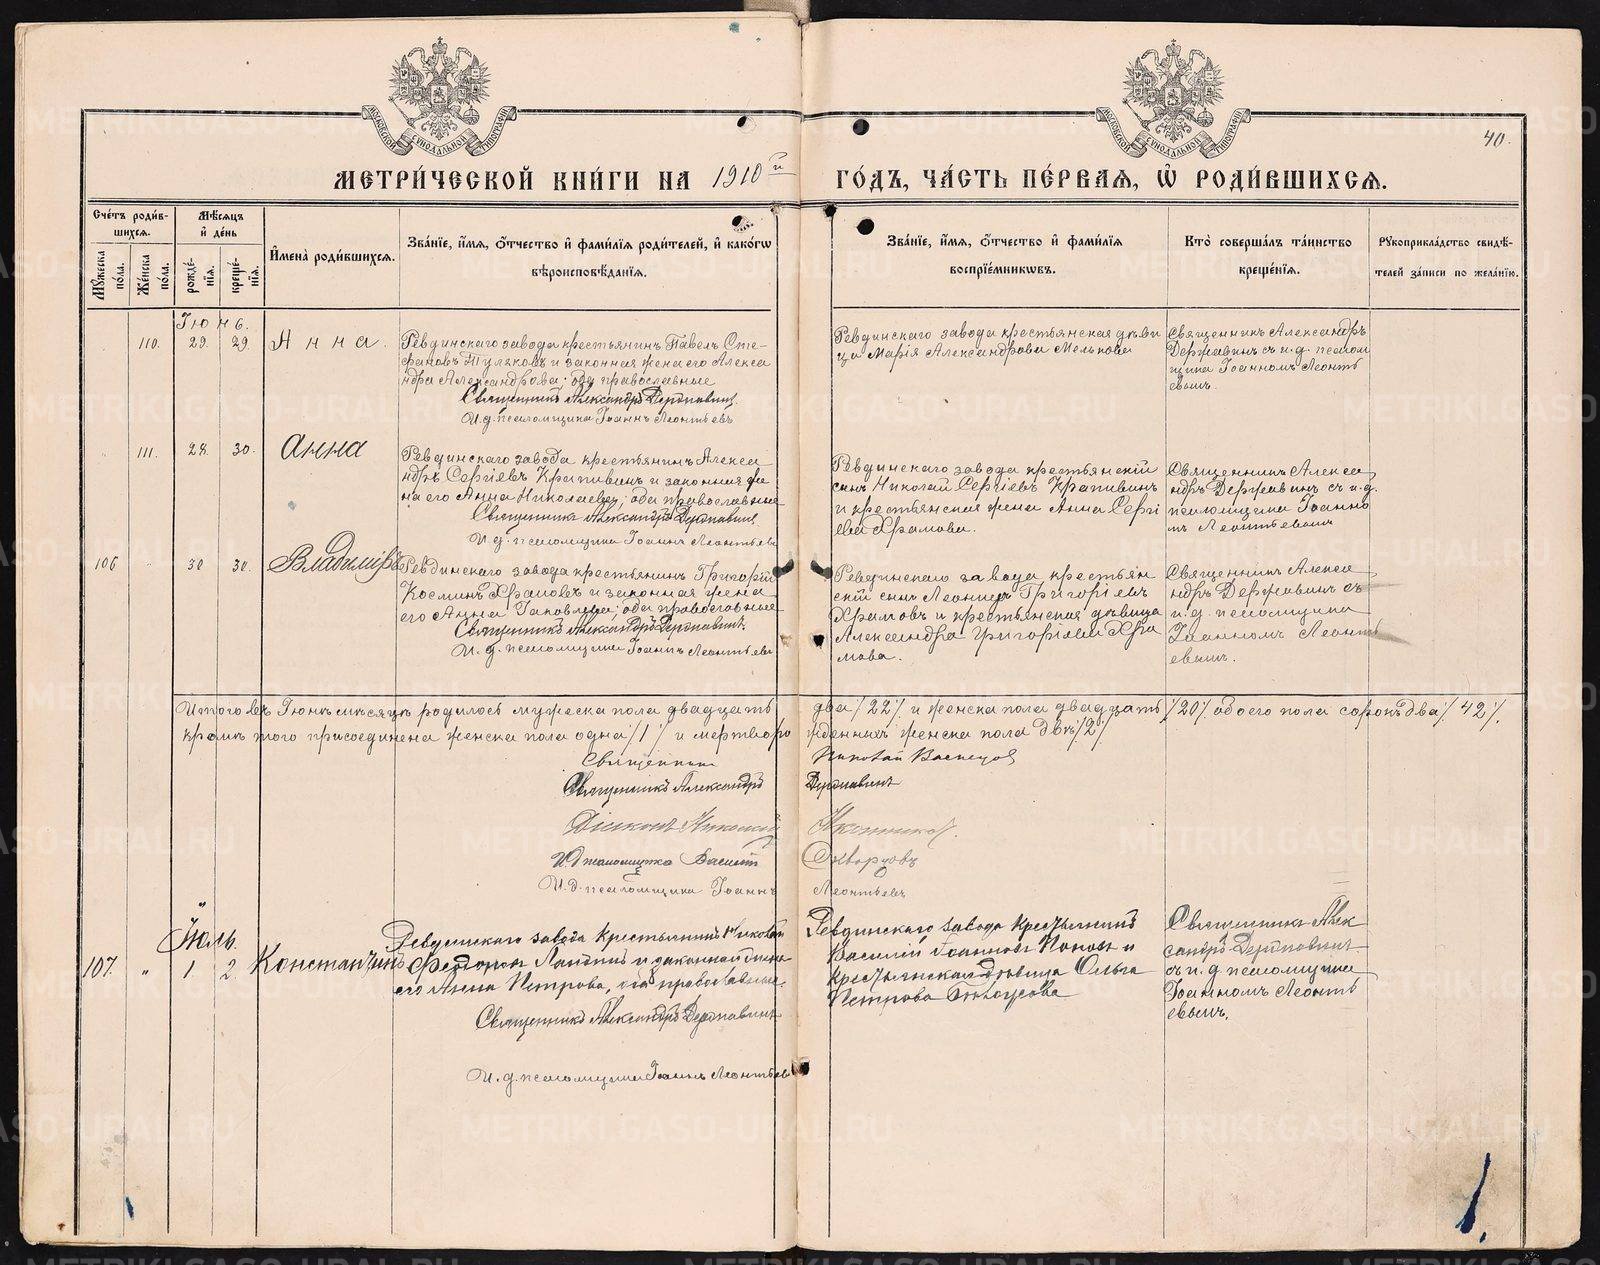 МОСКОВСКОЙ СѴНОДАЛЬНОЙ ТИПОГРАФІИ
МОСКОВСКОЙ СѴНОДАЛЬНОЙ ТИПОГРАФІИ
40.
МЕТРИ́ЧЕСКОЙ КНИ́ГИ НА 1910й ГО́ДЪ, ЧА́СТЬ ПЕ́РВАѦ, Ѡ҆ РОДИ́ВШИХСѦ.
Сче́тъ роди́в-
шихсѧ.
Мѣ́сѧцъ
и҆ де́нь
Му́жеска по́ла.
Же́нска по́ла.
рожде́-
нїѧ.
креще́-
нїѧ.
И҆мена̀ роди́вшихсѧ.
Зва́нїе, и҆́мѧ, ѻ҆́тчество и҆ фами́лїѧ роди́телей, и҆ како́гѡ
вѣроисповѣ́данїѧ.
Зва́нїе, и҆́мѧ, ѻ҆́тчество и҆ фами́лїѧ
воспрїе́мникѡвъ.
Кто̀ соверша́лъ та́инство
креще́нїѧ.
Рꙋкоприкла́дство свидѣ́-
телей за́писи по жела́нїю.
Іюнь.
110. 29. 29. Анна.
Ревдинскаго завода крестьянинъ Павелъ Сте-
фановъ Туляковъ и законная жена его Алекса
ндра Александрова; оба православные
Священникъ Александръ Державинъ.
И. д. псаломщика Іоаннъ Леонтьевъ
Ревдинскаго завода крестьянская дѣви
ца Марія Александрова Мелькова
Священникъ Александръ
Державинъ съ и. д. псалом
щика Іоанномъ Леонть
евымъ.
111. 28. 30. Анна
Ревдинскаго завода крестьянинъ Алекса
ндръ Сергіевъ Крапивинъ и законная же
на его Анна Николаева; оба православные
Священникъ Александръ Державинъ.
И. д. псаломщика Іоаннъ Леонтьевъ
Ревдинскаго завода крестьянскій
сынъ Николай Сергіевъ Крапивинъ
и крестьянская жена Анна Сергі
ева Храмова.
Священникъ Алекса
ндръ Державинъ съ и. д.
псаломщика Іоанно
мъ Леонтьевымъ
106 " 30 30. Владиміръ
Ревдинскаго завода крестьянинъ Григорій
Косминъ Храмовъ и законная жена
его Анна Іаковлева; оба православные
Священникъ Александръ Державинъ.
И. д. псаломщика Іоаннъ Леонтьевъ
Ревдинскаго завода крестьян
скій сынъ Леонидъ Григоріевъ
Храмовъ и крестьянская дѣвица
Александра Григоріева Хра
мова.
Священникъ Алекса
ндръ Державинъ съ
и. д. псаломщика
Іоанномъ Леонть
евымъ.
Итого въ Іюнѣ мѣсяцѣ родилось мужеска пола двадцать два /22/ и женска пола двадцать /20/ обоего пола сорокъ два /42/,
кромѣ того присоединена женска пола одна /1/ и мертворо жденныхъ женска пола двѣ /2/
Священникъ
Священникъ Александръ Державинъ
Діаконъ Николай
И. д. псаломщика Василій Скворцовъ
И. д. псаломщика Іоаннъ Леонтьевъ
Іюль.
107. " 1. 2. Константинъ
Ревдинскаго завода крестьянинъ Николай
и законная жена
его Анна Петрова, оба православные
Священникъ Александръ Державинъ
И. д. псаломщика Іоаннъ Леонтьевъ
Ревдинскаго завода крестьянинъ
Василій Іоанновъ Поповъ и
крестьянская дѣвица Ольга
Петрова Бѣлоусова
Священникъ Алек
сандръ Державинъ
съ и. д псаломщика
Іоанномъ Леонть
евымъ.
METRIKI.GASO-URAL.RU